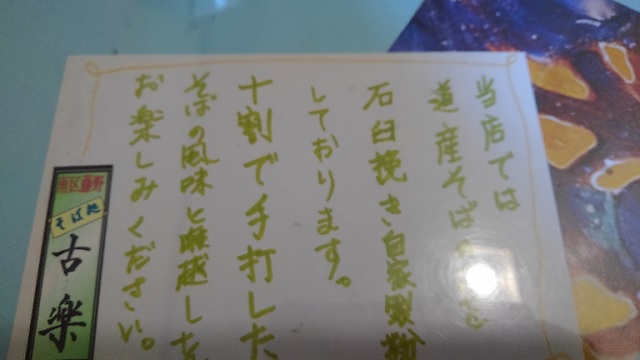 当店では
道産そば
石臼挽き自家製粉
しております。
十割で手打した
そばの風味と喉越しを
お楽しみください。
南区藤野
そば処
古楽